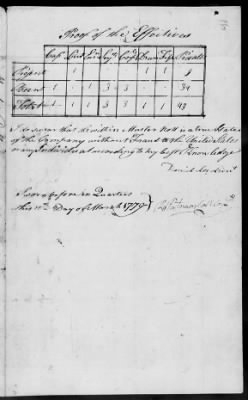 Proof of the Effectives
Cap Lieut Ens Serj Corp Drum Fife Privats
Present 1 1 1 1 8
Absent 1 1 3 3 34
Total 1 1 3 3 1 1 42
I do swear that the within Muster Roll is a true State
of the Company without Fraud to the United States
or any Individual according to my best Knowledge
Daniel
Sworn before me Quarters
this 11th Day of March 1779